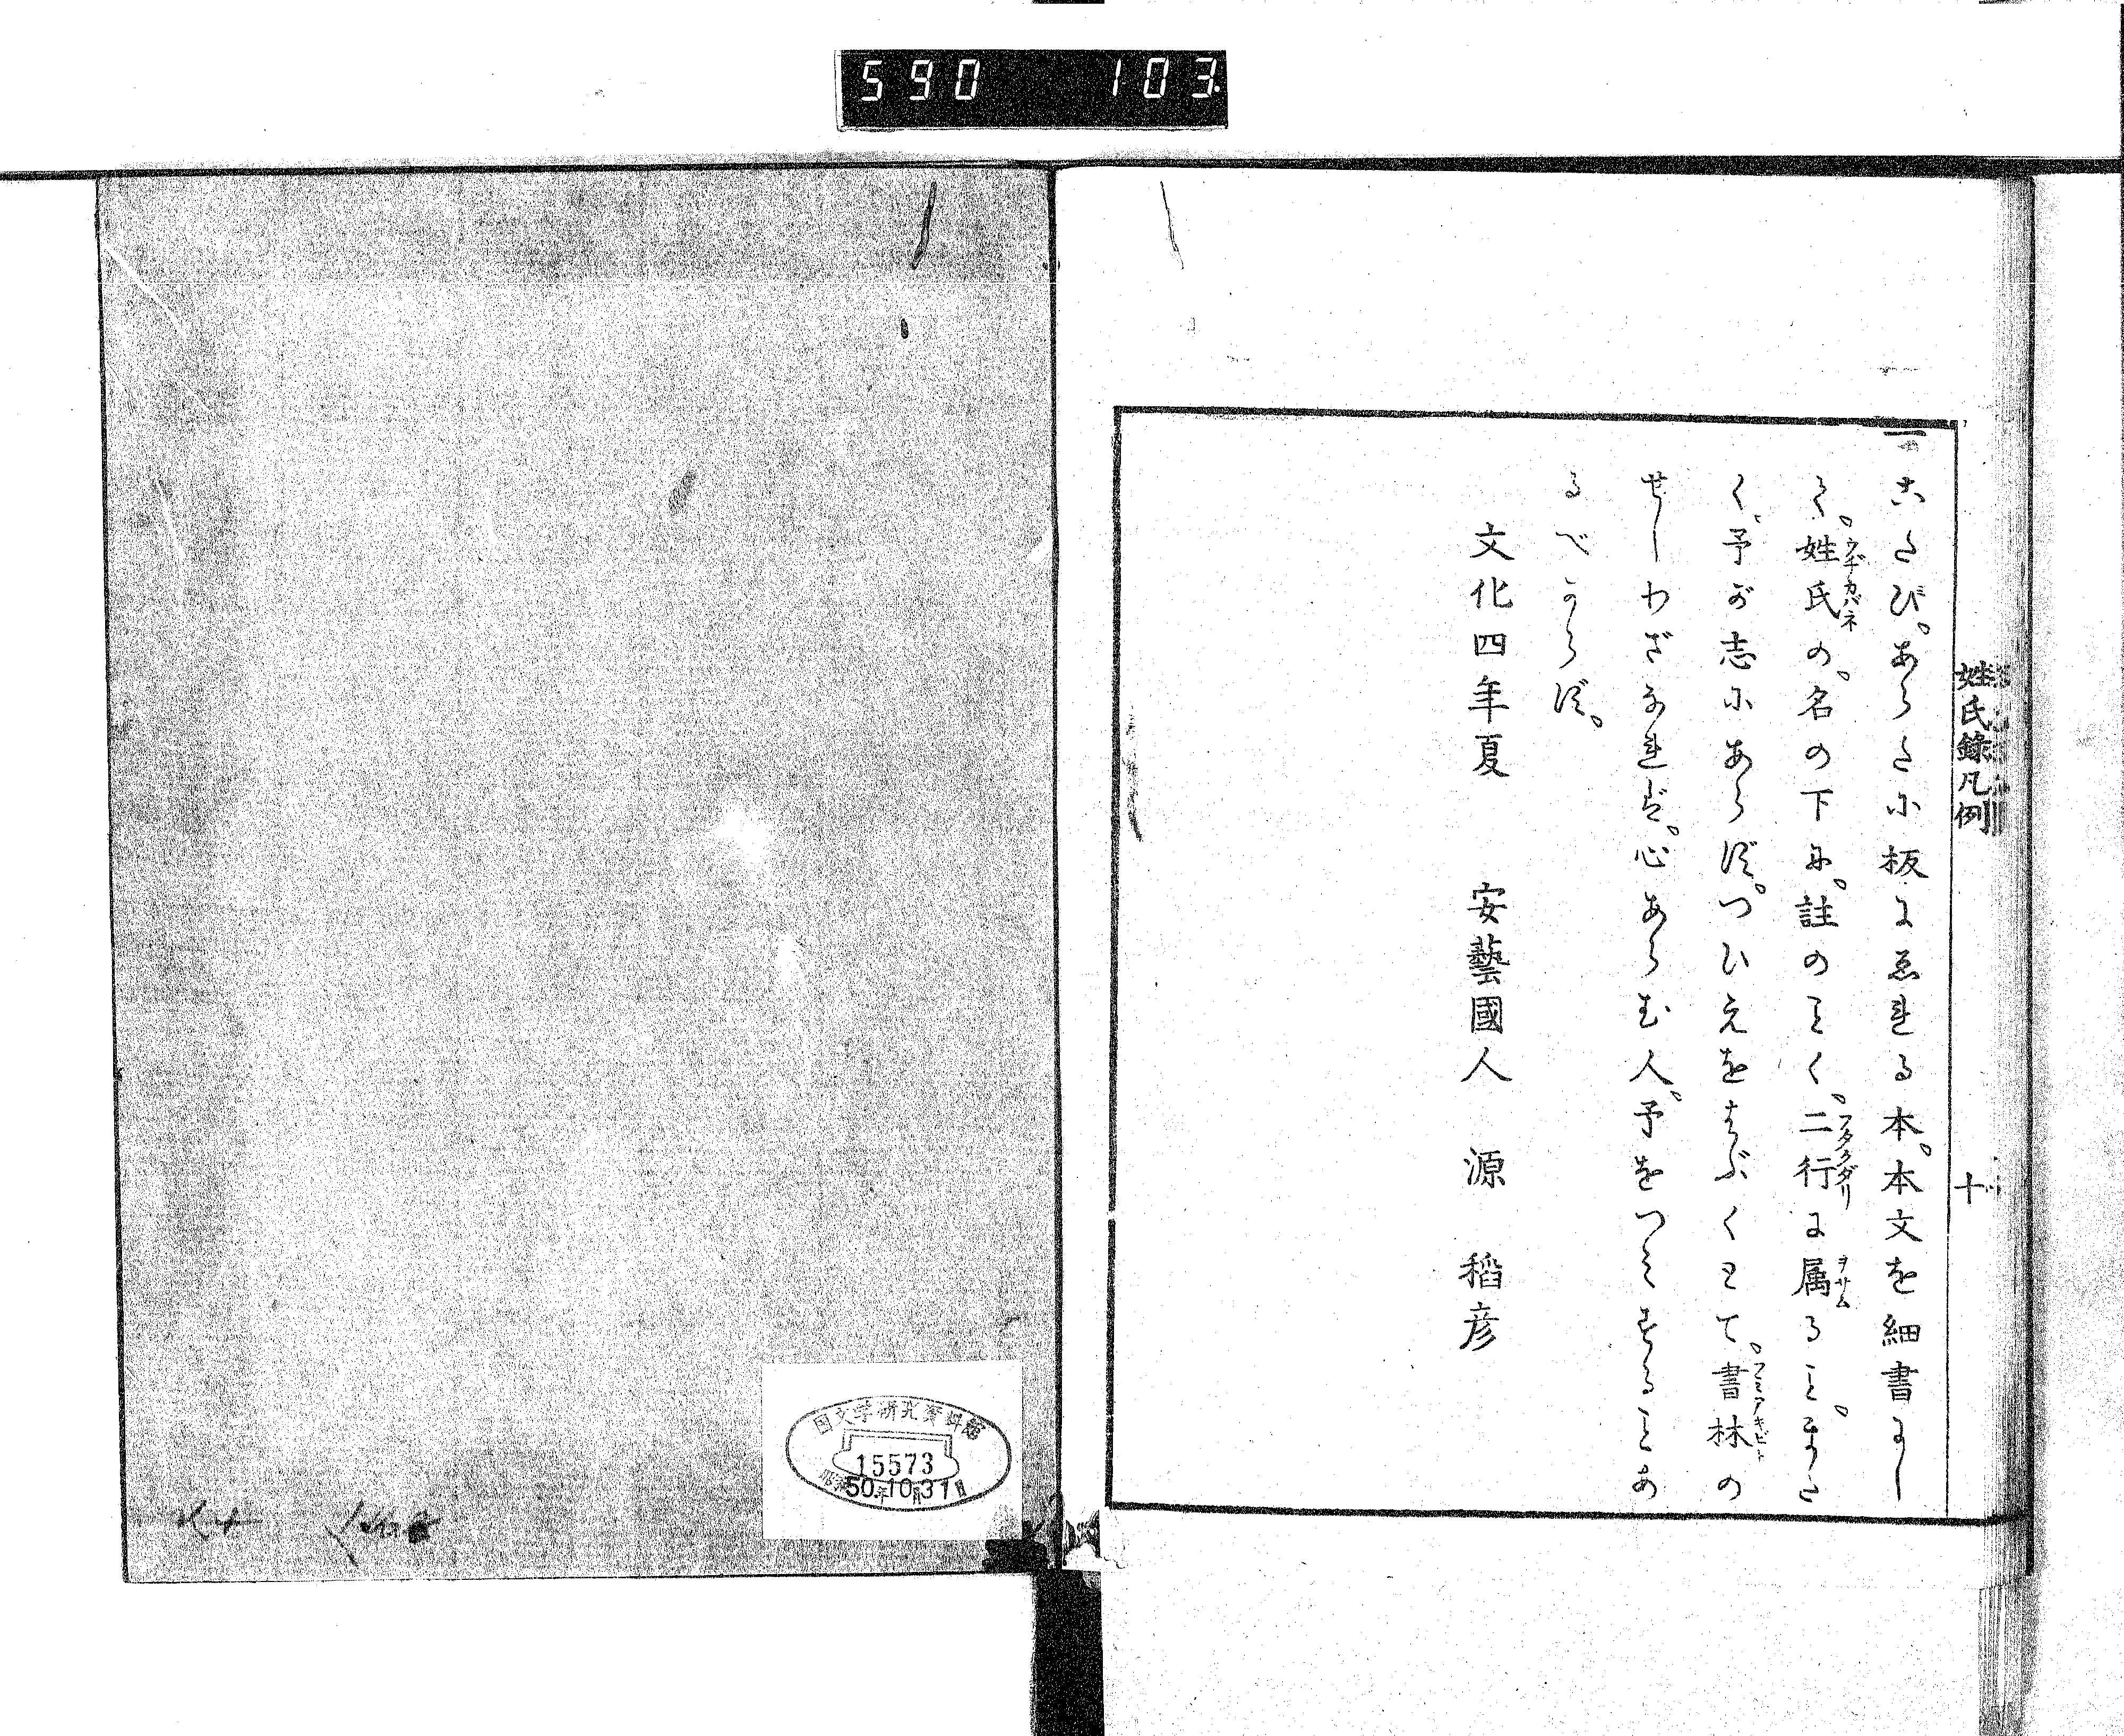 590 103
姓氏錄凡例 十
一こたび。あらたに板にゑれる本。本文を細書にし
て。姓氏の。名の下に。註のごとく。二行に属ること。またく
ウヂカバネ
フタクダリ
ヲサム
く、予が志にあらず。つひえをはぶくとて。書林の
フミアキビト
せしわざなれば。心あらむ人。予をつみすることあ
るべからず。
文化四年夏 安藝國人 源 稻彦
国文学研究資料館
15573
昭和50年10月31日